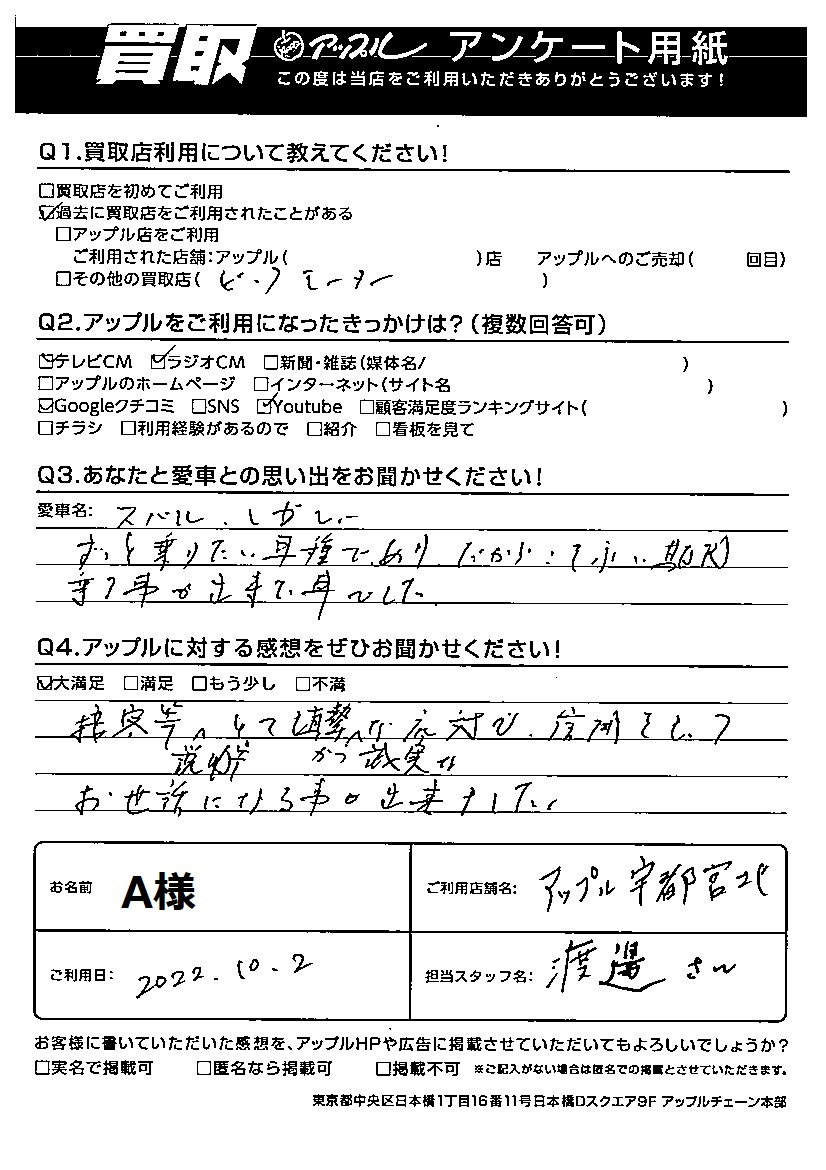 買取 アップル アンケート用紙
この度は当店をご利用いただきありがとうございます!
Q1.買取店利用について教えてください!
□買取店を初めてご利用
☑過去に買取店をご利用されたことがある
□アップル店をご利用
ご利用された店舗:アップル( )店 アップルへのご売却( 回目)
□その他の買取店( ビックモーター )
Q2.アップルをご利用になったきっかけは?(複数回答可)
☑テレビCM ☑ラジオCM □新聞・雑誌(媒体名/ )
□アップルのホームページ □インターネット(サイト名 )
☑Googleクチコミ □SNS ☑Youtube □顧客満足度ランキングサイト( )
□チラシ □利用経験があるので □紹介 □看板を見て
Q3.あなたと愛車との思い出をお聞かせください!
愛車名: スバル
ずっと乗りたい車種であり
乗る事が出来た車でした
Q4.アップルに対する感想をぜひお聞かせください!
☑大満足 □満足 □もう少し □不満
応対で、信用をして
説明 かつ誠実な
お世話になる事が出来ました
お名前 A様 ご利用店舗名: アップル宇都宮北
ご利用日: 2022.10.2 担当スタッフ名: 渡邊さん
お客様に書いていただいた感想を、アップルHPや広告に掲載させていただいてもよろしいでしょうか?
□実名で掲載可 □匿名なら掲載可 □掲載不可 ※ご記入がない場合は匿名での掲載とさせていただきます。
東京都中央区日本橋1丁目16番11号日本橋Dスクエア9F アップルチェーン本部